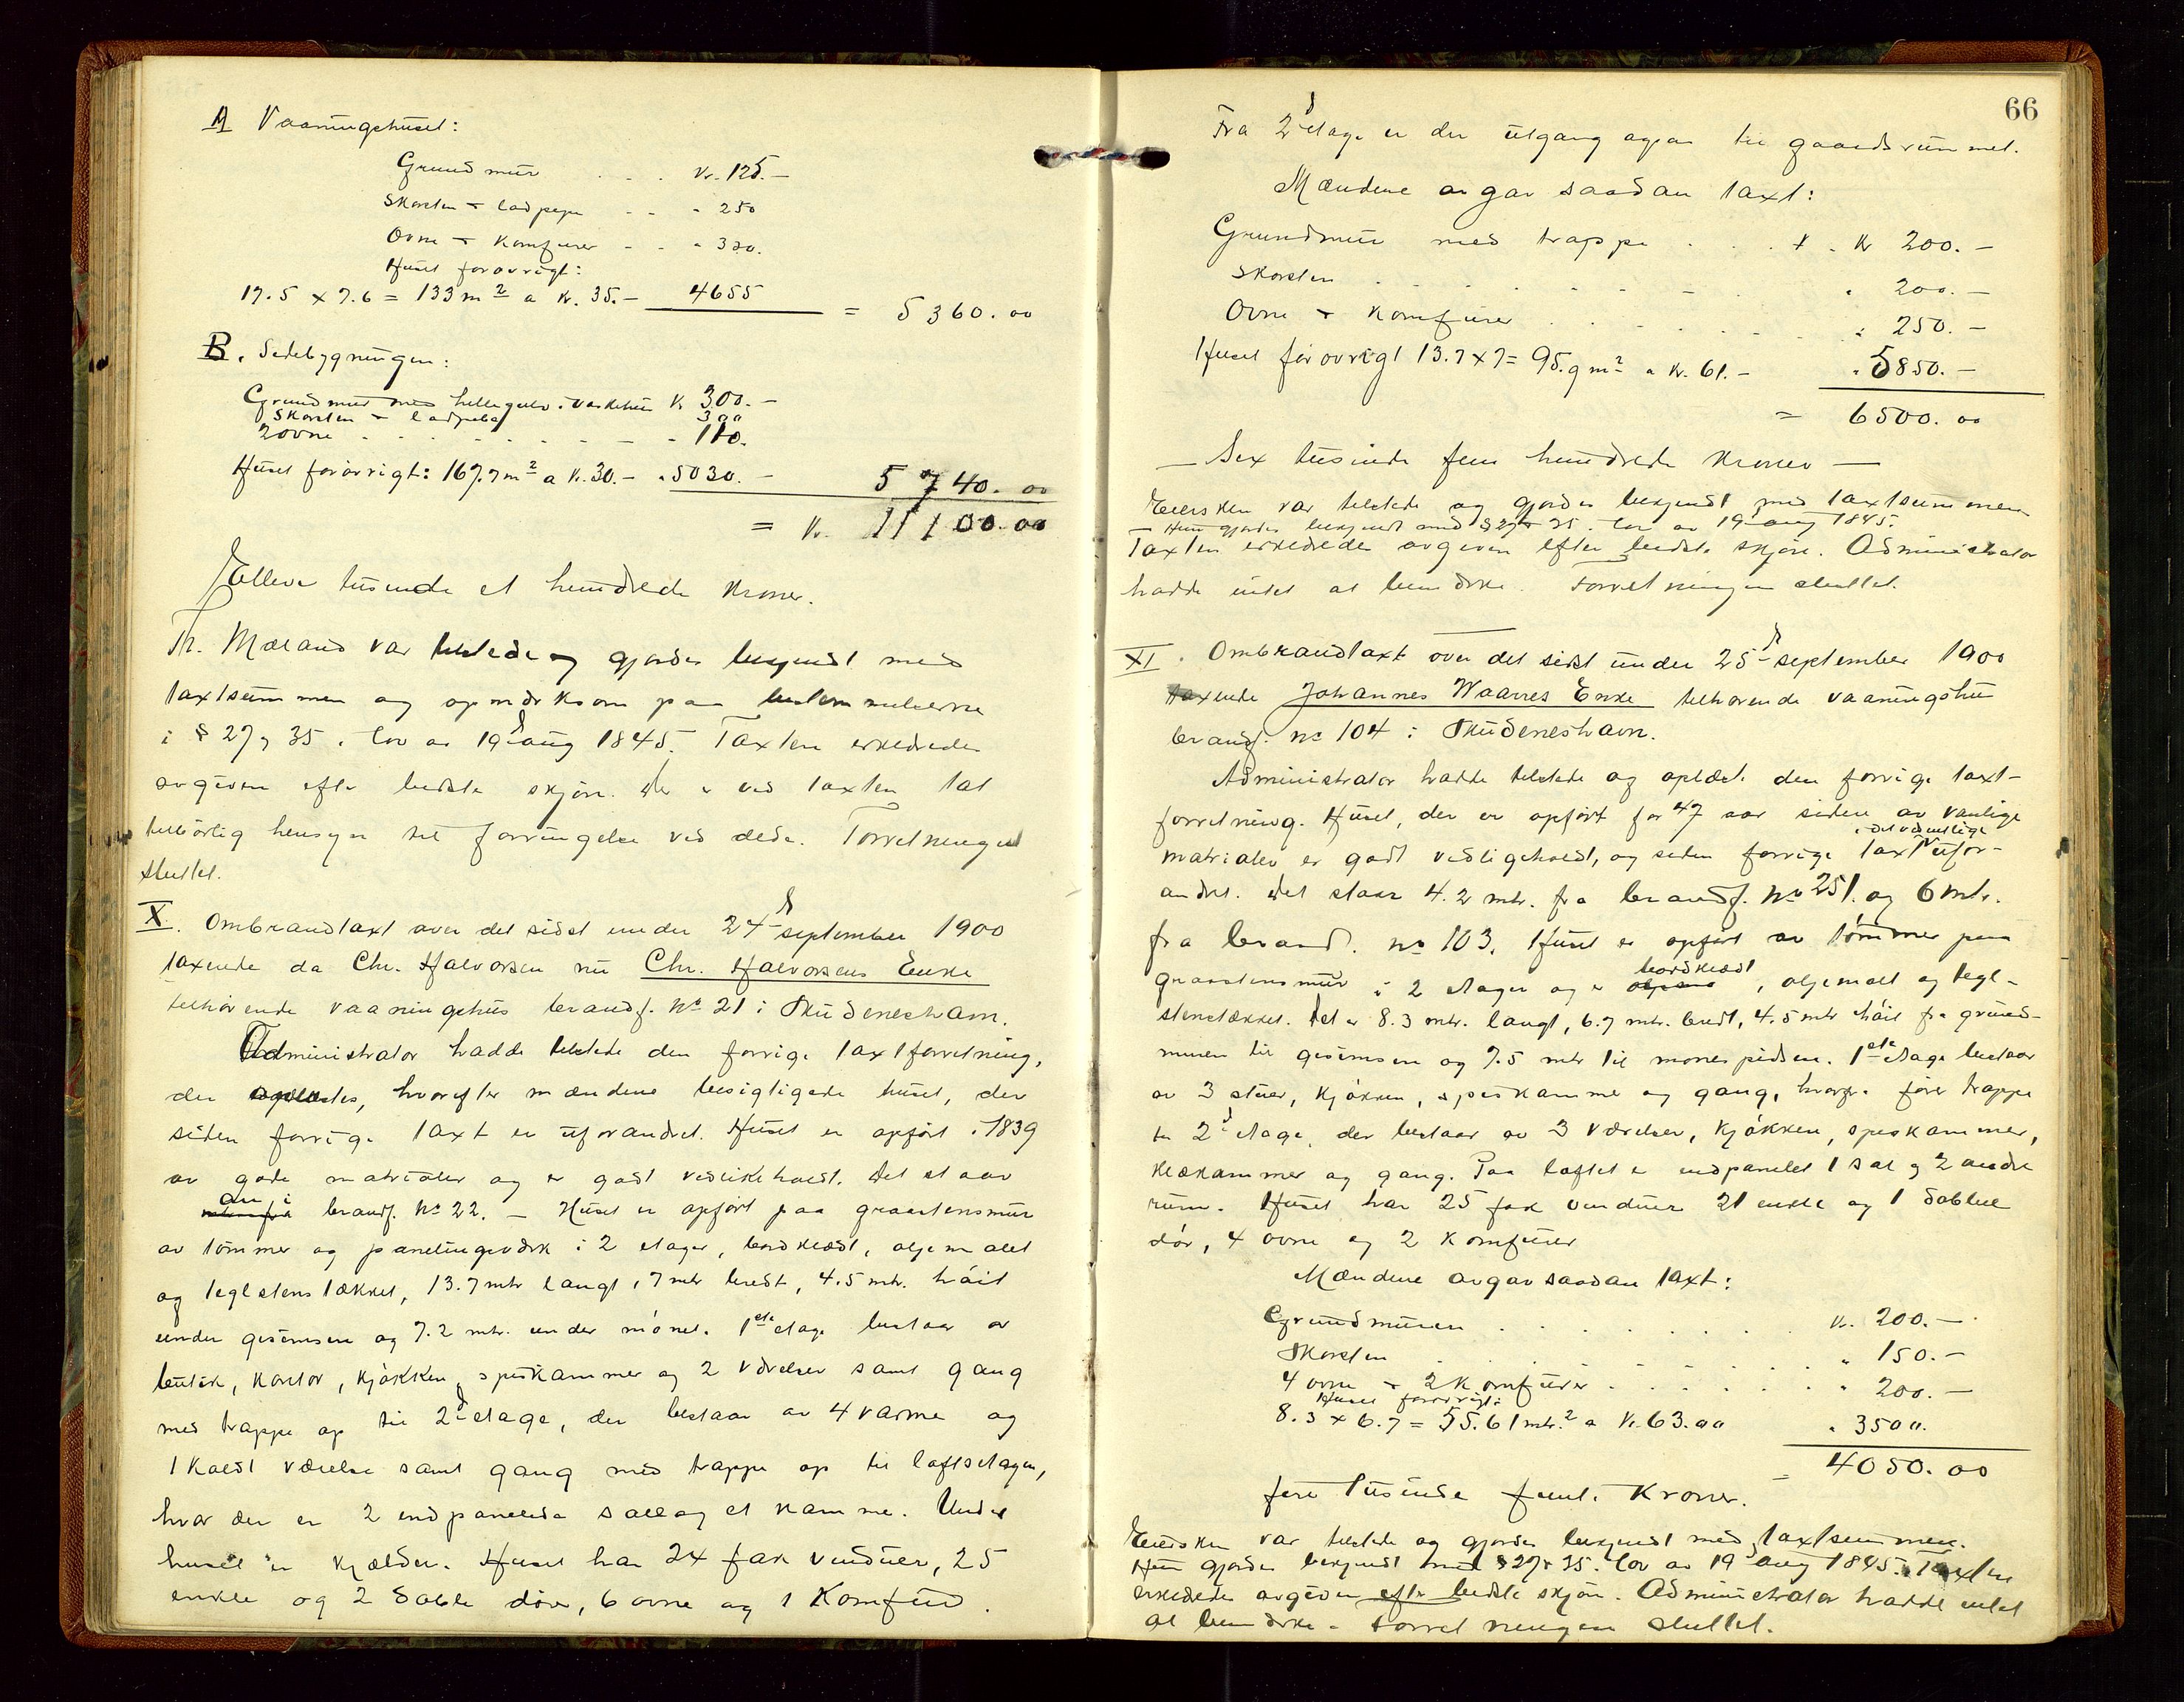 A Vaaningshuset:
Grundmur . . . Kr. 125.—
Skorsten + ladpipe . . " 250
Ovne + komfurer - . " 330.
Huset forøvrigt:
17.5 x 7.6 = 133 m² a Kr. 35.— 4655 = 5360.00
B. Sidebygningen:
Grundmur med hellegulv i vaskehus Kr 300.—
Skorsten + ladpibe 300
2 ovne . . . . . . . - 110.
Huset forøvrigt: 167.7 m² a Kr. 30.— " 5030.— 5740.00
= Kr. 11100.00
Elleve tusinde et hundrede Kroner.
Th. Mæland var tilstede og gjordes bekjendt med
taxtsummen og opmærksom paa bestemmelserne
i § 27 og 35 i lov av 19d aug 1845. Taxten erklæredes
avgiven efter bedste skjøn. Der er ved taxten tat
tilbørlig hensyn til forringelse ved ælde. Forretningen
sluttet.
X. Ombrandtaxt over det sidst under 24d september 1900
taxerede da Chr. Halvorsen nu Chr. Halvorsens Enke
tilhørende vaaningshus brandf. No 21 i Skudeneshavn.
Administrator hadde tilstede den forrige taxtforretning,
der oplæstes, hvorefter mændene besigtigede huset, der
siden forrige taxt er uforandret. Huset er opført i 1839
av gode matrialer og er godt vedlikeholdt. Det staar
an i brandf. No 22. — Huset er opført paa graastensmur
av tømmer og panelingsverk i 2 etager, bordklædt, oljemalet
og teglstenstækket, 13.7 mtr langt, 7 mtr bredt, 4.5 mtr. høit
under gesimsen og 7.2 mtr. under mønet. 1ste etage bestaar av
butik, kontor, kjøkken, spiskammer og 2 værelser samt gang
med trappe op til 2d etage, der bestaar av 4 varme og
1 koldt værelse samt gang med trappe op til loftsetagen,
hvor der er 2 indpanelede sale og et kammer. Under
huset er kjælder. Huset har 24 fak vinduer, 25
enkle og 2 doble døre, 6 ovne og 1 Komfur.
66
Fra 2d etage er der utgang ogsaa til gaardsrummet.
Mændene avgav saadan taxt:
Grundmur med trappe . . . + . Kr 200.—
Skorsten . . . . . . . " 200.—
Ovne + Komfurer . . . . . . " 250.—
Huset forøvrigt 13.7 x 7 = 95.9 m² a Kr. 61.— " 5850.—
= 6500.00
— Sex tusinde fem hundrede Kroner —
Eiersken var tilstede og gjordes bekjendt med taxtsummen
— Hun gjordes bekjendt med § 27 + 35 i lov av 19d aug 1845.
Taxten erklæredes avgiven efter bedste skjøn. Administrator
hadde intet at bemærke. Forretningen sluttet.
XI. Ombrandtaxt over det sidst under 25d september 1900
taxerede Johannes Waarres Enke tilhørende vaaningshus
brandf. no 104 i Skudeneshavn.
Administrator hadde tilstede og oplæste den forrige taxt-
forretning. Huset, der er opført for 47 aar siden av vanlige
i det væsentlige
matrialer er godt vedligeholdt, og siden forrige taxt ufor-
andret. Det staar 4.2 mtr. fra brandf. No 251. og 6 mtr.
fra brandf. no 103. Huset er opført av tømmer paa
bordklædt
graastensmur i 2 etager og er , oljemalt og tegl-
stenstækket. Det er 8.3 mtr. langt, 6.7 mtr. bredt, 4.5 mtr høit fra grund-
muren til gesimsen og 7.5 mtr til mønespidsen. 1ste etage bestaar
av 3 stuer, kjøkken, spiskammer og gang, hvorfra fører trappe
til 2d etage, der bestaar av 3 værelser, kjøkken, spiskammer,
klækammer og gang. Paa loftet er indpanelet 1 sal og 2 andre
rum. Huset har 25 fak vinduer 21 enkle og 1 dobbel
dør, 4 ovne og 2 komfurer
Mændene avgav saadan taxt:
Grundmuren . . . . . . . Kr. 200.—
Skorsten . . . . . . . " 150.—
4 ovne + 2 Komfurer . . . . . . " 200.—
Huset forøvrigt:
8.3 x 6.7 = 55.61 mtr.² a Kr. 63.00 " 3500.
= 4050.00
fire tusinde femti Kroner.
Eiersken var tilstede og gjordes bekjendt med taxtsummen.
Hun gjordes bekjendt med § 27 + 35 i lov av 19d aug 1845. Taxten
erklæredes avgiven efter bedste skjøn. Administrator hadde intet
at bemærke. Forretningen sluttet.